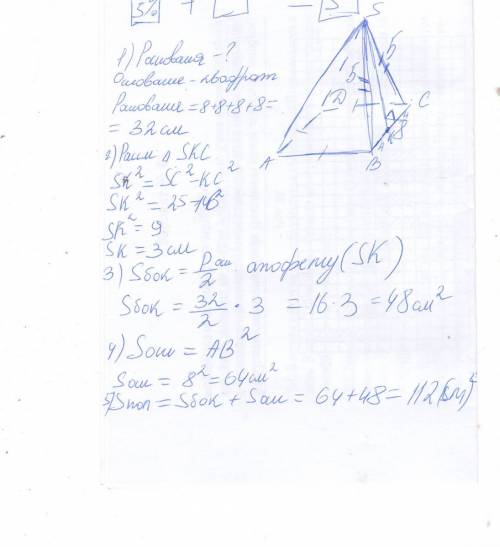 5% + - 5
1) Pоснования - ?
Основание - квадрат
Pоснования = 8+8+8+8=
= 32 см
2) Рассм Δ SKC
SK² = SC² - KC²
SK² = 25 - 16
SK² = 9
SK = 3 см
3) Sбок = Pосн/2 апофему (SK)
Sбок = 32/2 · 3 = 16·3 = 48 см²
4) Sосн = AB²
Sосн = 8² = 64 см²
5) Sпол = Sбок + Sосн = 64+48 = 112 (см)²
S
5
5
Д
C
A
B
K
4
8